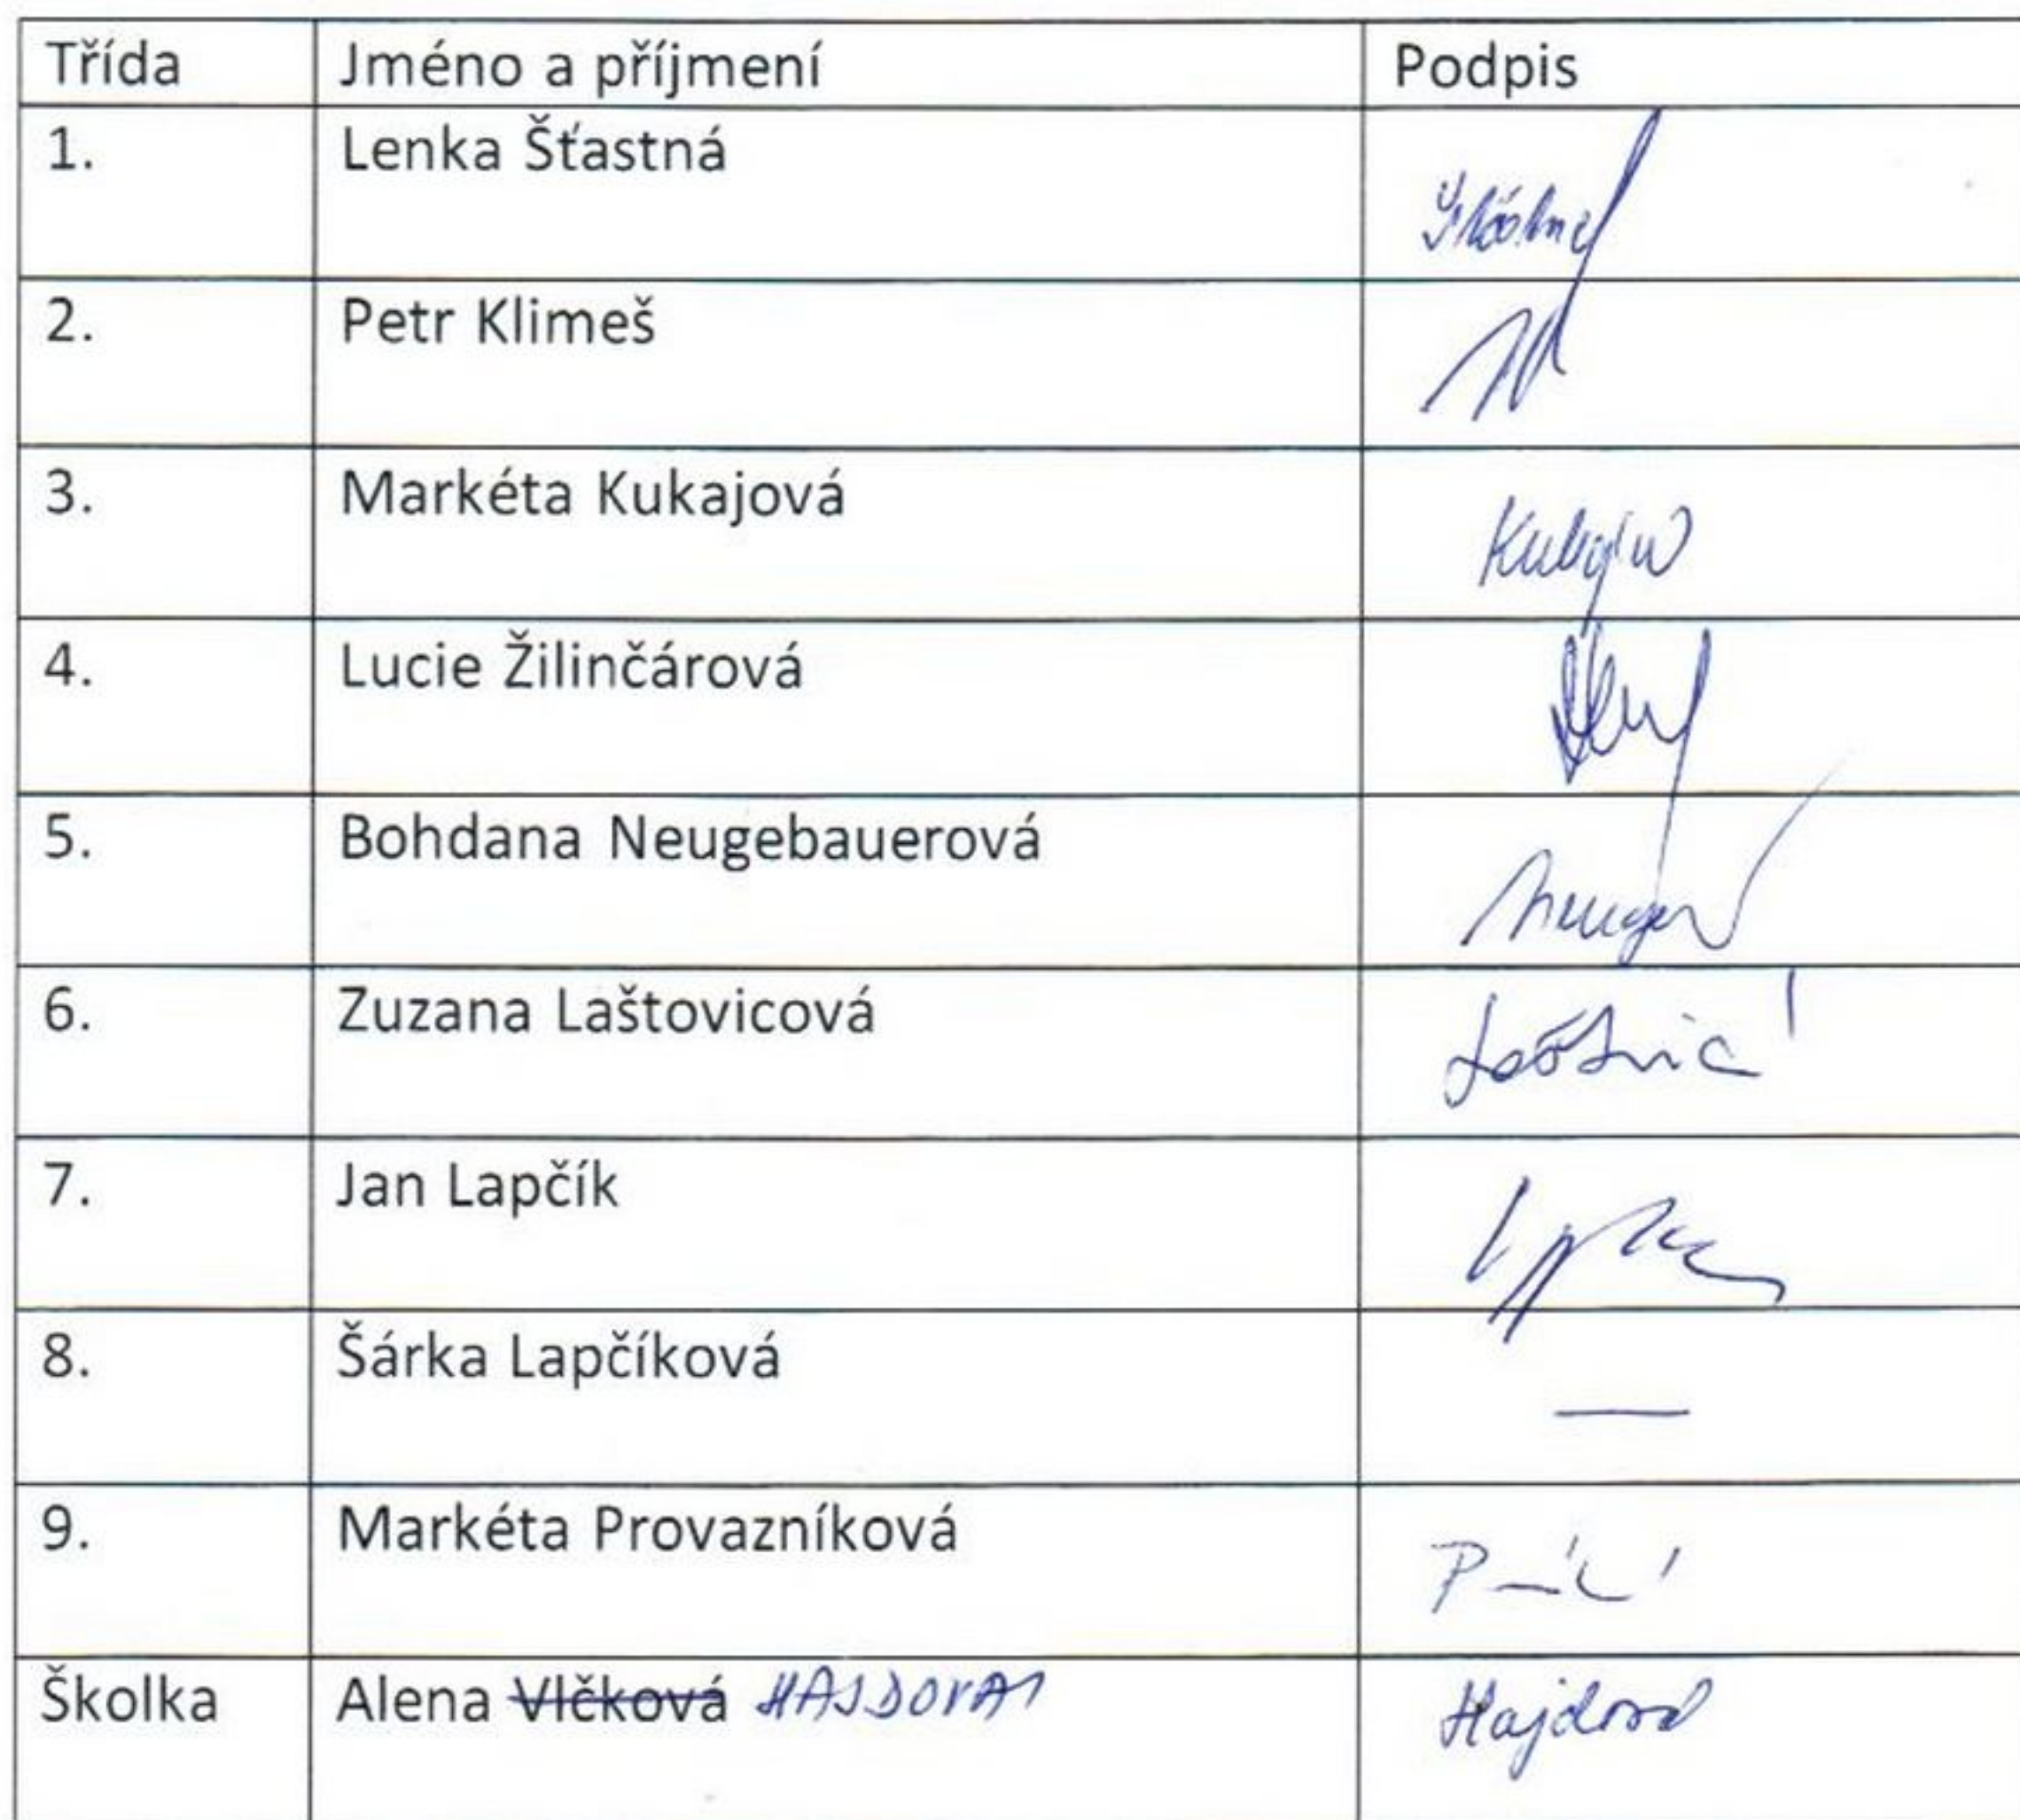 Třída Jméno a příjmení Podpis
1. Lenka Šťastná
2. Petr Klimeš
3. Markéta Kukajová
4. Lucie Žilinčárová
5. Bohdana Neugebauerová
6. Zuzana Laštovicová
7. Jan Lapčík
8. Šárka Lapčíková —
9. Markéta Provazníková
Školka Alena Vlčková HAJDOVÁ Hajdová